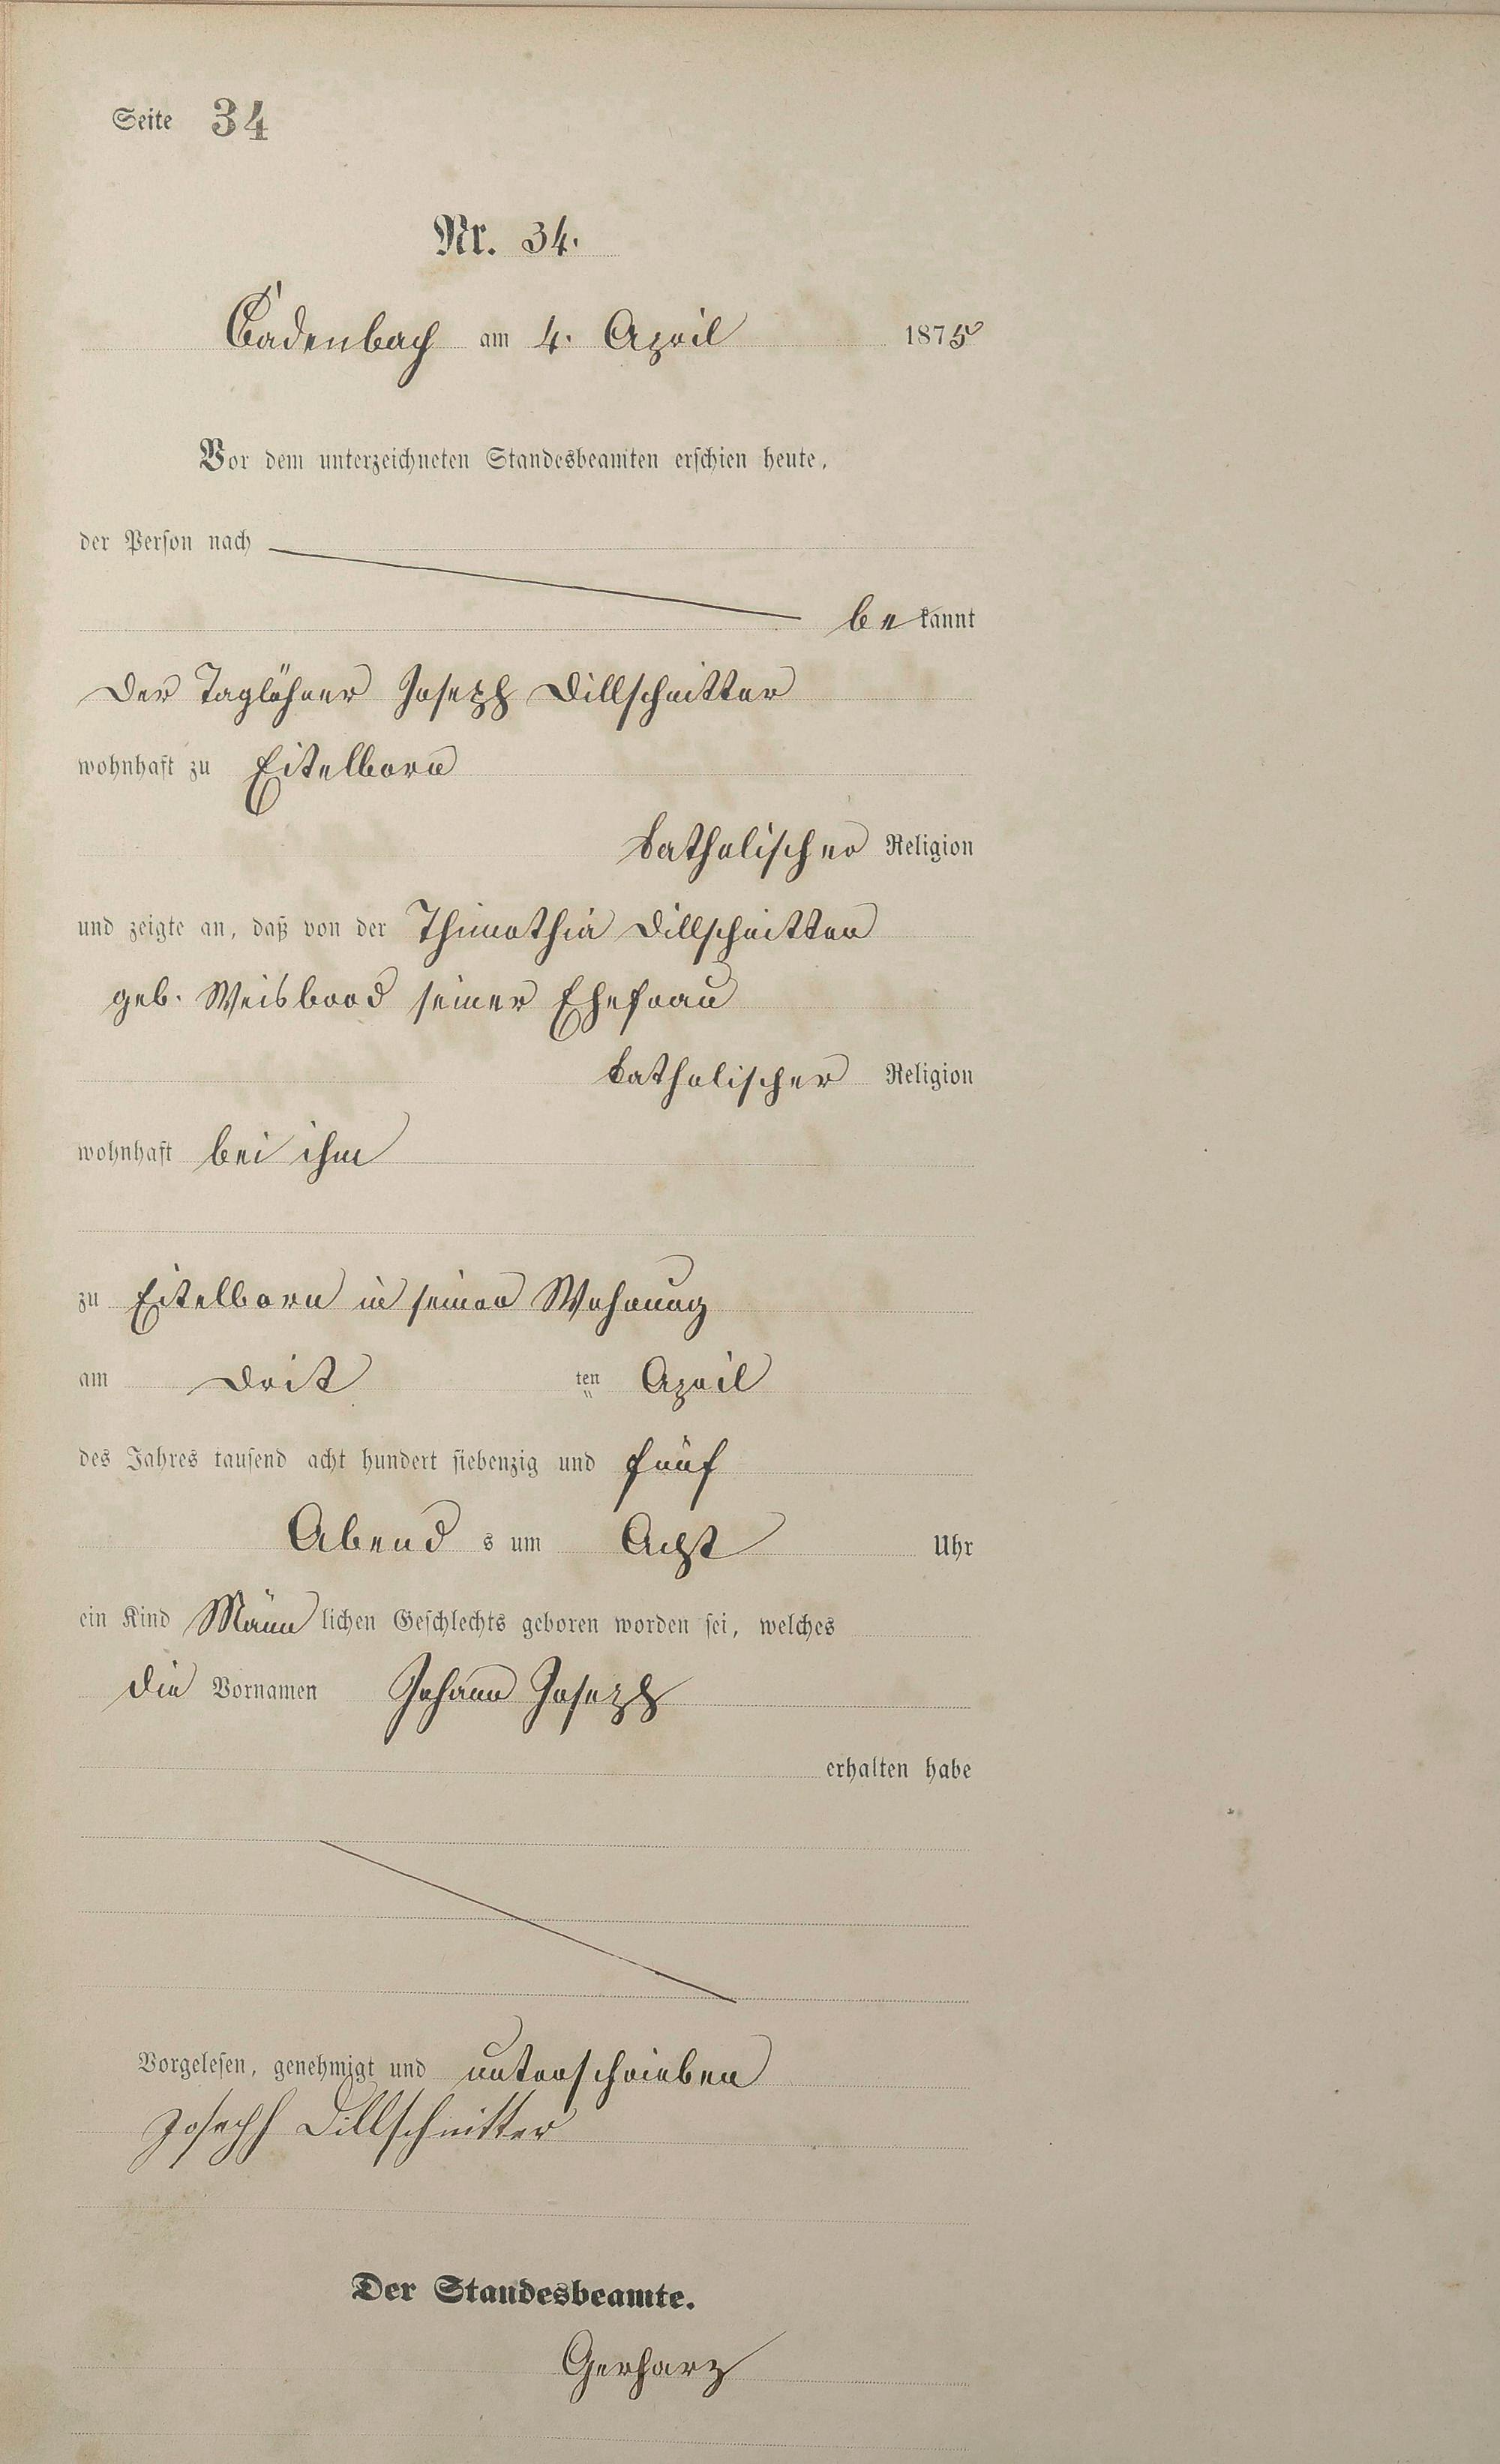 Seite 34
Nr. 34.
Cadenbach am 4. April 1875
Vor dem unterzeichneten Standesbeamten erschien heute,
der Person nach
be kannt
Der Taglöhner Joseph Dillschnitter
wohnhaft zu Eitelborn
katholischer Religion
und zeigte an, daß von der Thimothia Dillschnitter
geb. Weisbrod seiner Ehefrau
katholischer Religion
wohnhaft bei ihm
zu Eitelborn in seiner Wohnung
am Drit ten April
des Jahres tausend acht hundert siebenzig und fünf
Abend s um Acht Uhr
ein Kind Männ lichen Geschlechts geboren worden sei, welches
die Vornamen Johann Joseph
erhalten habe
Vorgelesen, genehmigt und unterschrieben
Joseph Dillschnitter
Der Standesbeamte.
Gerharz